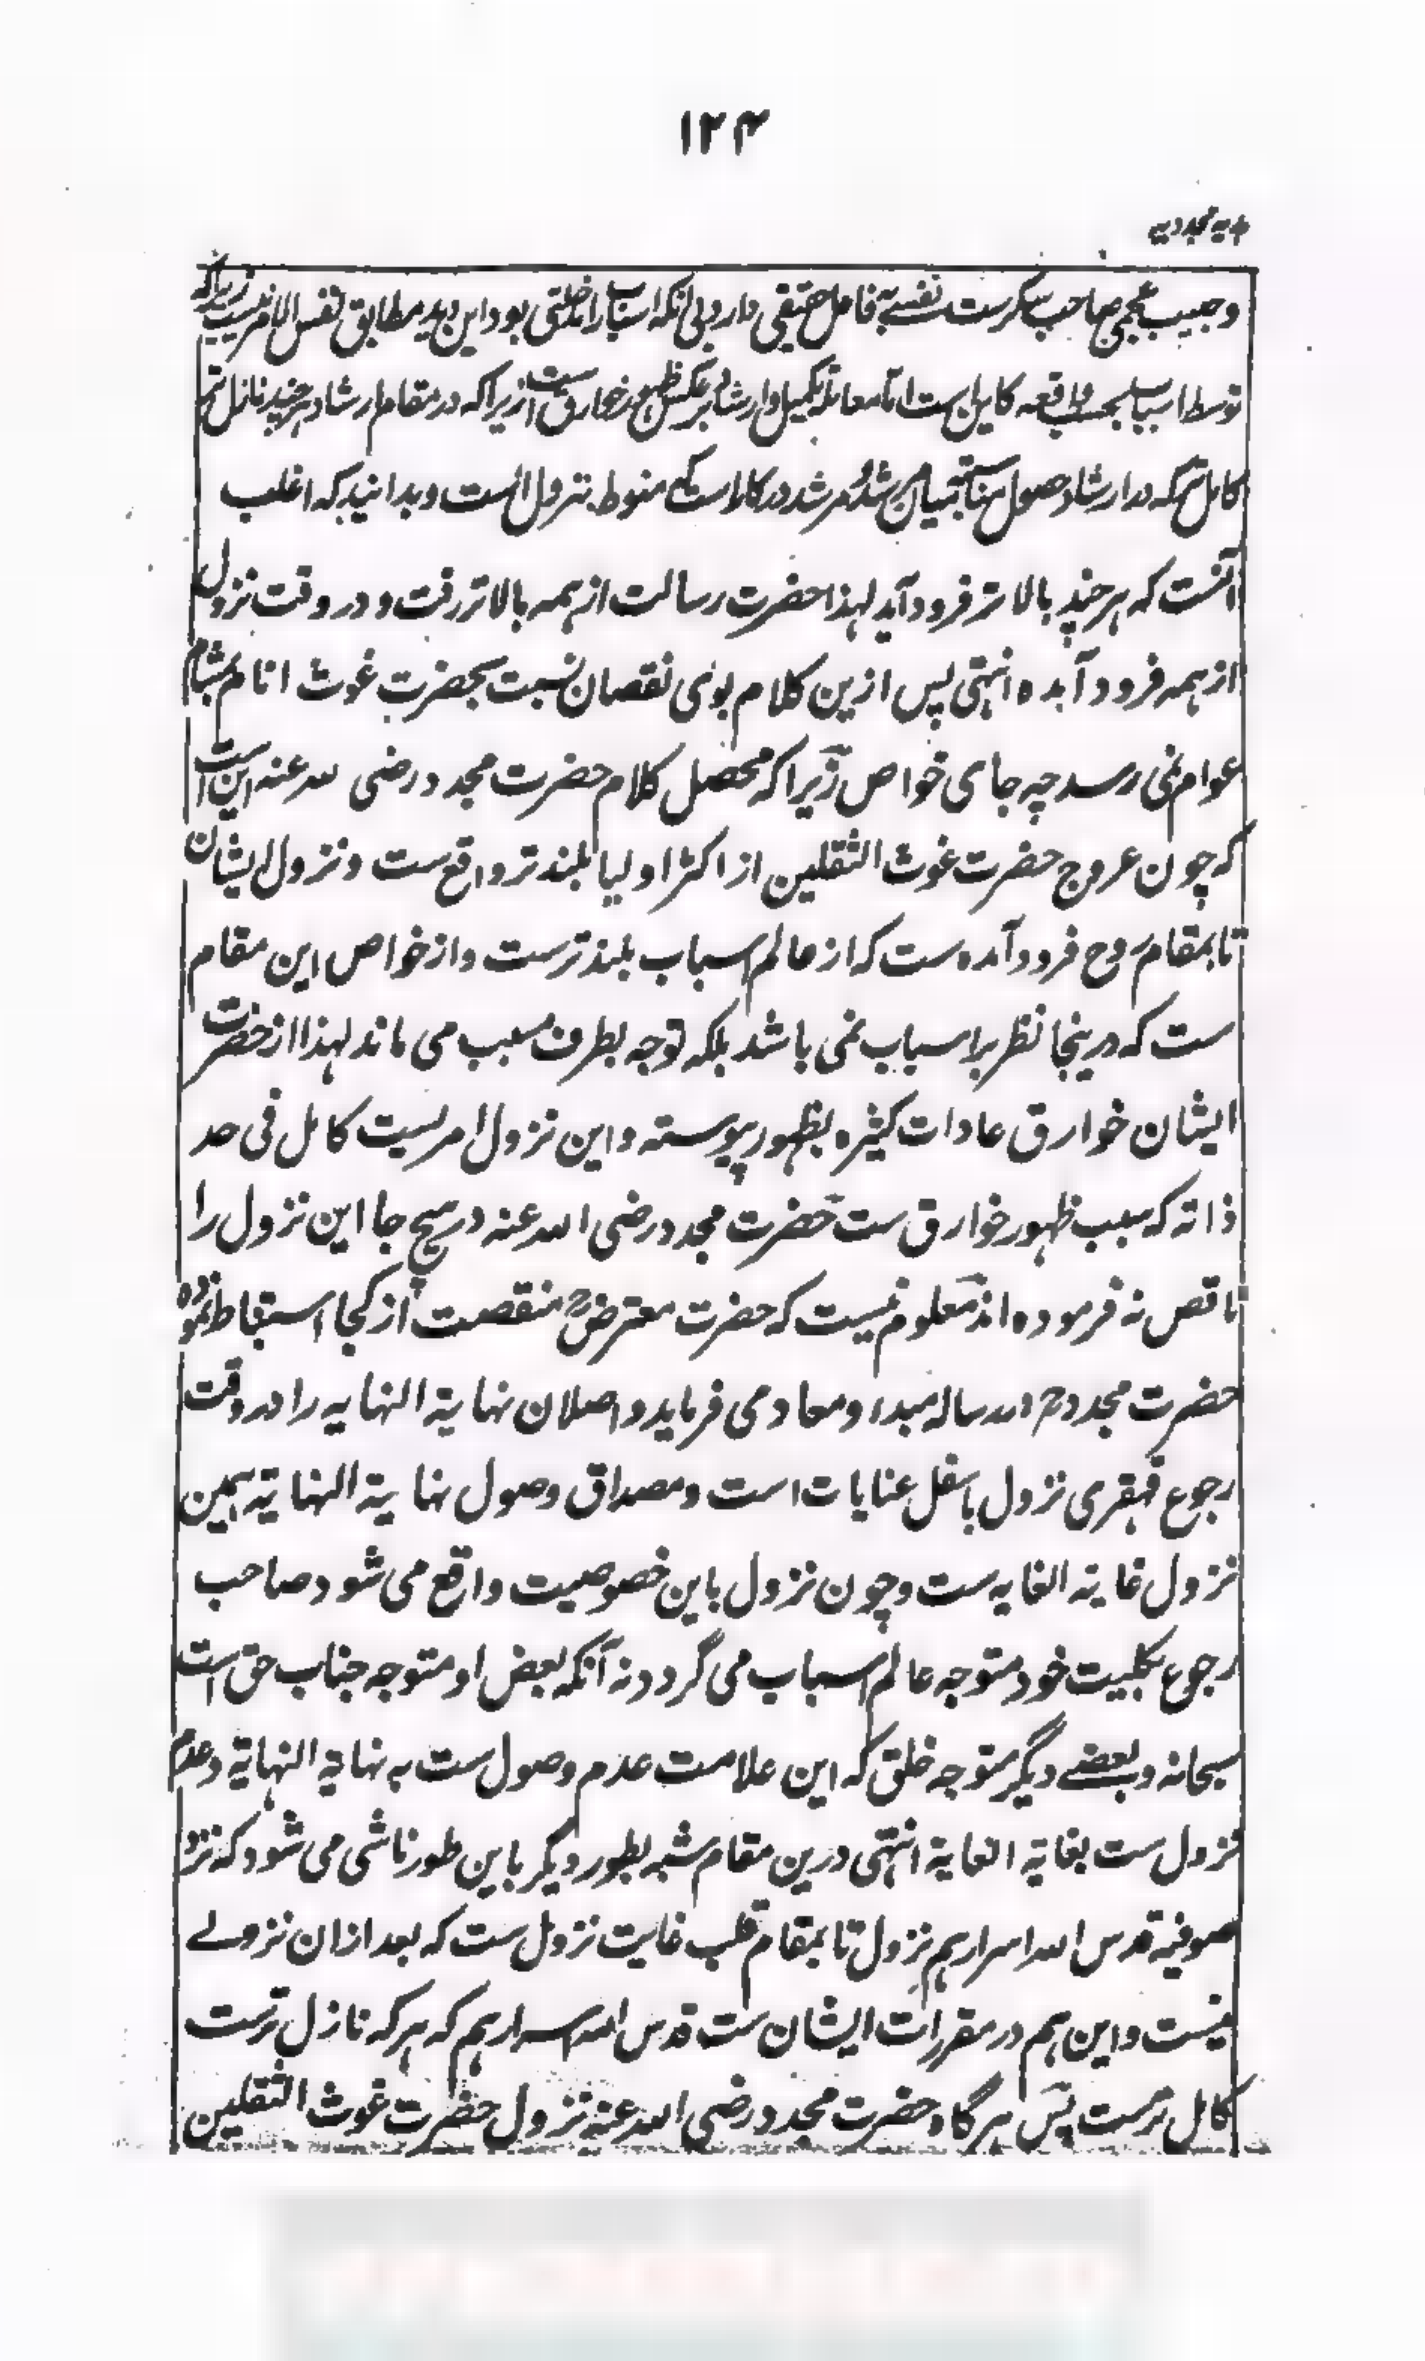 ۱۲۴
ہدیہ مجددیہ
وحبیب عجمی صاحب سکرست نفسے بہ فاعل حقیقی دارد بی آنکہ اسباب را دخلتی بود و این دید مطابق نفس الامر نیست زیراکہ
توسط اسباب بحسب واقعہ کاین است اما معاملہ تکمیل و ارشاد بر عکس ظہور خوارق ست زیراکہ در مقام ارشاد ہر چند نازل تر
کامل تر کہ در ارشاد حصول مناسبت میان مرشد و مسترشد درکارست کہ منوط بنزول است و بدانید کہ اغلب
آنست کہ ہر چند بالاتر فرود آید لہذا حضرت رسالت از ہمہ بالاتر رفت و در وقت نزول
از ہمہ فرود آمدہ انتہی پس ازین کلام بوی نقصان نسبت بحضرت غوث انام بمشام
عوام نمی رسد چہ جای خواص زیراکہ محصل کلام حضرت مجدد رضی اللہ عنہ این است
کہ چون عروج حضرت غوث الثقلین از اکثر اولیا بلند تر واقع ست و نزول ایشان
تا بمقام روح فرود آمدہ ست کہ از عالم اسباب بلند ترست و از خواص این مقام
ست کہ درینجا نظر بر اسباب نمی باشد بلکہ توجہ بطرف مسبب می ماند لہذا از حضرت
ایشان خوارق عادات کثیرہ بظہور پیوستہ و این نزول امریست کامل فی حد
ذاتہ کہ سبب ظہور خوارق ست حضرت مجدد رضی اللہ عنہ در ہیچ جا این نزول را
ناقص نہ فرمودہ اند معلوم نیست کہ حضرت معترض ؒ منقصت از کجا استنباط نمودہ
حضرت مجدد ؒ در رسالہ مبدء و معاد می فرماید واصلان نہایۃ النہایہ را در وقت
رجوع قہقری نزول باسفل غایات است و مصداق وصول نہایۃ النہایۃ ہمین
نزول غایۃ الغایہ ست و چون نزول باین خصوصیت واقع می شود صاحب
رجوع بکلیت خود متوجہ عالم اسباب می گردد نہ آنکہ بعض او متوجہ جناب حق است
سبحانہ و بعضے دیگر متوجہ خلق کہ این علامت عدم وصول ست بہ نہایۃ النہایۃ و عدم
نزول ست بغایۃ الغایۃ انتہی درین مقام شبہ بطور دیگر باین طور ناشی می شود کہ نزد
صوفیہ قدس اللہ اسرارہم نزول تا بمقام قلب غایت نزول ست کہ بعد ازان نزولے
نیست و این ہم در مقررات ایشان ست قدس اللہ اسرارہم کہ ہر کہ نازل ترست
کامل ترست پس ہر گاہ حضرت مجدد رضی اللہ عنہ نزول حضرت غوث الثقلین